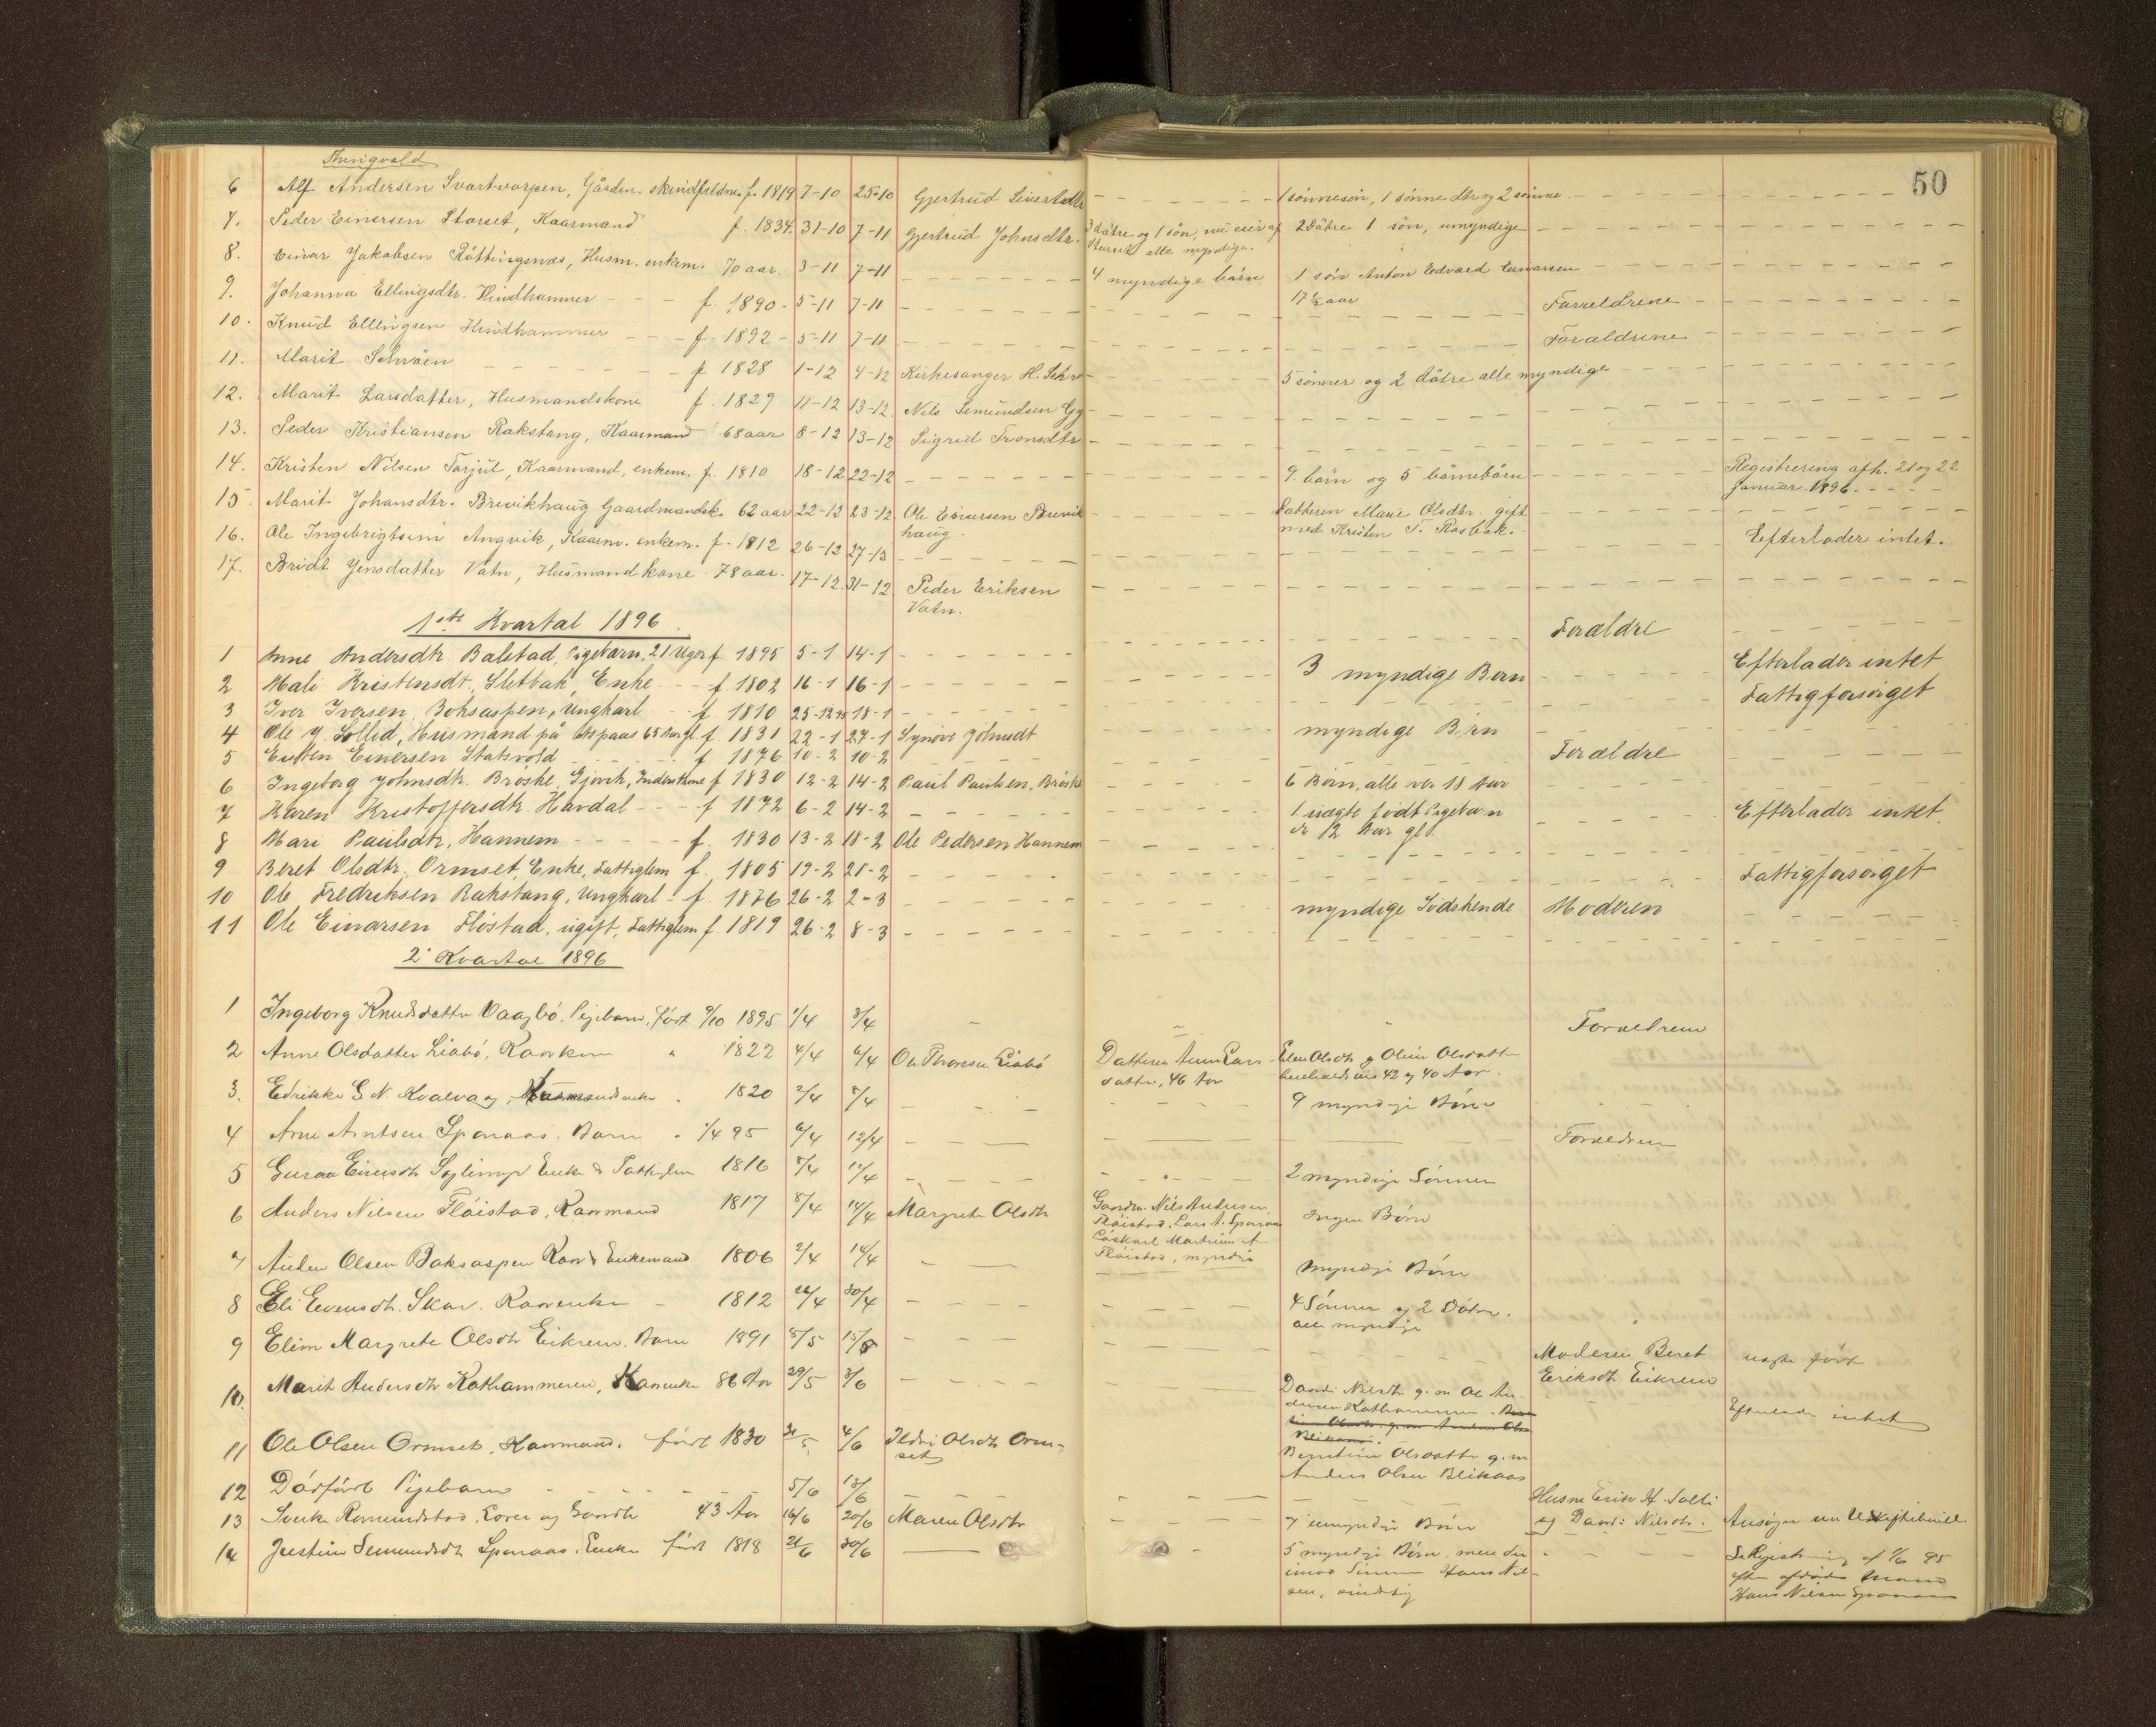 Tingvold
50
6 Alf Andersen Svartvarpen, Gårdm. f. 1819 7-10 25-10 Gjertrud Sivertsdtr 1 sønnesøn, 1 sønne dtr og 2 sønner
7. Peder Einersen Storset, Kaarmand f. 1834. 31-10 7-11 Gjertrud Johnsdtr. 3 døtre og 1 søn, nu eier af 2 Døtre 1 søn, umyndige
Storset alle myndige.
8. Einar Jakobsen Røttingsnæs, Husm. enkem. 70 aar. 3-11 7-11 4 myndige børn 1 søn Anton Edvard Einarsen
17½ aar
9. Johanna Ellingsdtr. Hindhammer f. 1890 - 5-11 7-11 Forældrene
10. Knud Ellingsen Hindhammer f. 1892 - 5-11 7-11 Forældrene
11. Marit Schrøen f 1828 1-12 4-12 Kirkesanger H. Schrø 5 sønner og 2 døtre alle myndige
12. Marit Larsdatter, Husmandskone f. 1829 11-12 13-12 Nils Semundsen
13. Peder Kristiansen Rakstang, Kaarmand 68 aar 8-12 13-12 Sigrid Tronsdtr
14. Kristen Nilsen Torjul, Kaarmand, enkem. f. 1810 18-12 22-12 9 børn og 5 børnebørn Registrering afh. 21 og 22
Januar 1896.
15 Marit Johansdtr. Brevikhaug Gaardmandsk. 62 aar 22-12 23-12 Ole Einarsen Brevik Datteren Marie Olsdtr. gift
haug med Kristen T. Rosbak.
16. Ole Ingebrigtsen Angvik, Kaarm. enkem. f. 1812 26-12 27-12 Efterlader intet.
17. Bridt Jensdatter Vatn, Husmandkone 78 aar. 17-12 31-12 Peder Eriksen
Vatn.
1ste Kvartal 1896
1 Anne Andersdtr. Balstad, Pigebarn, 21 Uger f 1895 5-1 14-1 Forældre
2 Mali Kristensdt. Sletbak, Enke f. 1802 16-1 16-1 3 myndige Børn Efterlader intet
3 Iver Iversen Boksaspen, Ungkarl f. 1810 25-12 95 18-1 Fattigforsørget
4 Ole J. Sollid, Husmand på 65 Aar gl. f. 1831 22-1 27-1 Synøve Johnsdt myndige Børn
5 Einersen Statsvold f 1876 10-2 10-2 Forældre
6 Ingeborg Johnsdtr. Brøske, Gjøvik, f 1830 12-2 14-2 Paul Paulsen, Brøske 6 Børn, alle over 18 Aar
7 Karen Kristoffersdtr. Havdal f 1872 6-2 14-2 1 uægte født Pigebarn Efterlader intet.
12 Aar gl.
8 Mari Paulsdtr, Hannem f. 1830 13-2 18-2 Ole Pedersen Hannem
9 Beret Olsdtr. Ormset, Enke, Fattiglem f. 1805 19-2 21-2 Fattigforsørget
10 Ole Fredriksen Rakstang, Ungkarl f. 1876 26-2 2-3 myndige Sødskende Moderen
11 Ole Einarsen Fløstad, ugift, Fattiglem f. 1819 26-2 8-3
2' Kvartal 1896
1 Ingeborg Knudsdatter Vaagbø, Pigebarn, født 9/10 1895 1/4 3/4 Forældrene
2 Anne Olsdatter Liabø, 1822 4/4 6/4 Ole Liabø Datteren Anne Lars- Elen Olsdtr og Oline Olsdatter
datter, 46 Aar 42 og 40 Aar.
3. G. N. Kvalvaag, 1820 2/4 8/4 9 myndige Børn
4 Arne Arntsen Spenaas. Barn 1/4 95 6/4 12/4 Forældrene
5 Guraa Einersdtr Enke & Fattiglem 1816 8/4 14/4 2 myndige Sønner
6 Anders Nilsen Fløistad, Kaarmand 1817 8/4 14/4 Margrete Olsdtr Gaardm. Nils Andersen Ingen Børn
Fløistad, Lars A. Spenaas
Løskarl A
Fløistad, myndig
7 Olsen Boksaspen Kaar & Enkemand 1806 2/4 14/4 Myndige Børn
8 Eli Evensdtr. Skar. Kaarenke 1812 22/4 30/4 4 Sønner og 2 Døtre.
alle myndige
9 Elin Margrete Olsdtr Eikrem, Barn 1891 8/5 15/5 Moderen Beret uægte født
Eriksdtr Eikrem
10. Marit Andersdtr Kathammeren, Kaarenke 86 Aar 29/5 3/6 Nilsdtr g. m. Ole An- Efterlader intet
dersen Kathammeren.
11 Ole Olsen Ormset, Kaarmand. født 1830 31/5 4/6 Ildri Olsdtr Orm-
set
Olsdatter g. m
Anders Olsen Blikaas
12 Dødfødt Pigebarn 5/6 13/6 Husm Erik H. Solli
og Nilsdtr.
13 Romundstad, og Gaardbr 43 Aar 16/6 20/6 Maren Olsdtr 7 umyndige Børn Ansøger om Uskiftebevill.
14 Semundsdtr Spenaas. Enke født 1818 21/6 30/6 5 myndige Børn, men den
Sønnen Hans Nil-
sen, sindssyg
Se Registrering af 1/6 95
efter afdøde Mand
Hans Nilsen Spenaas